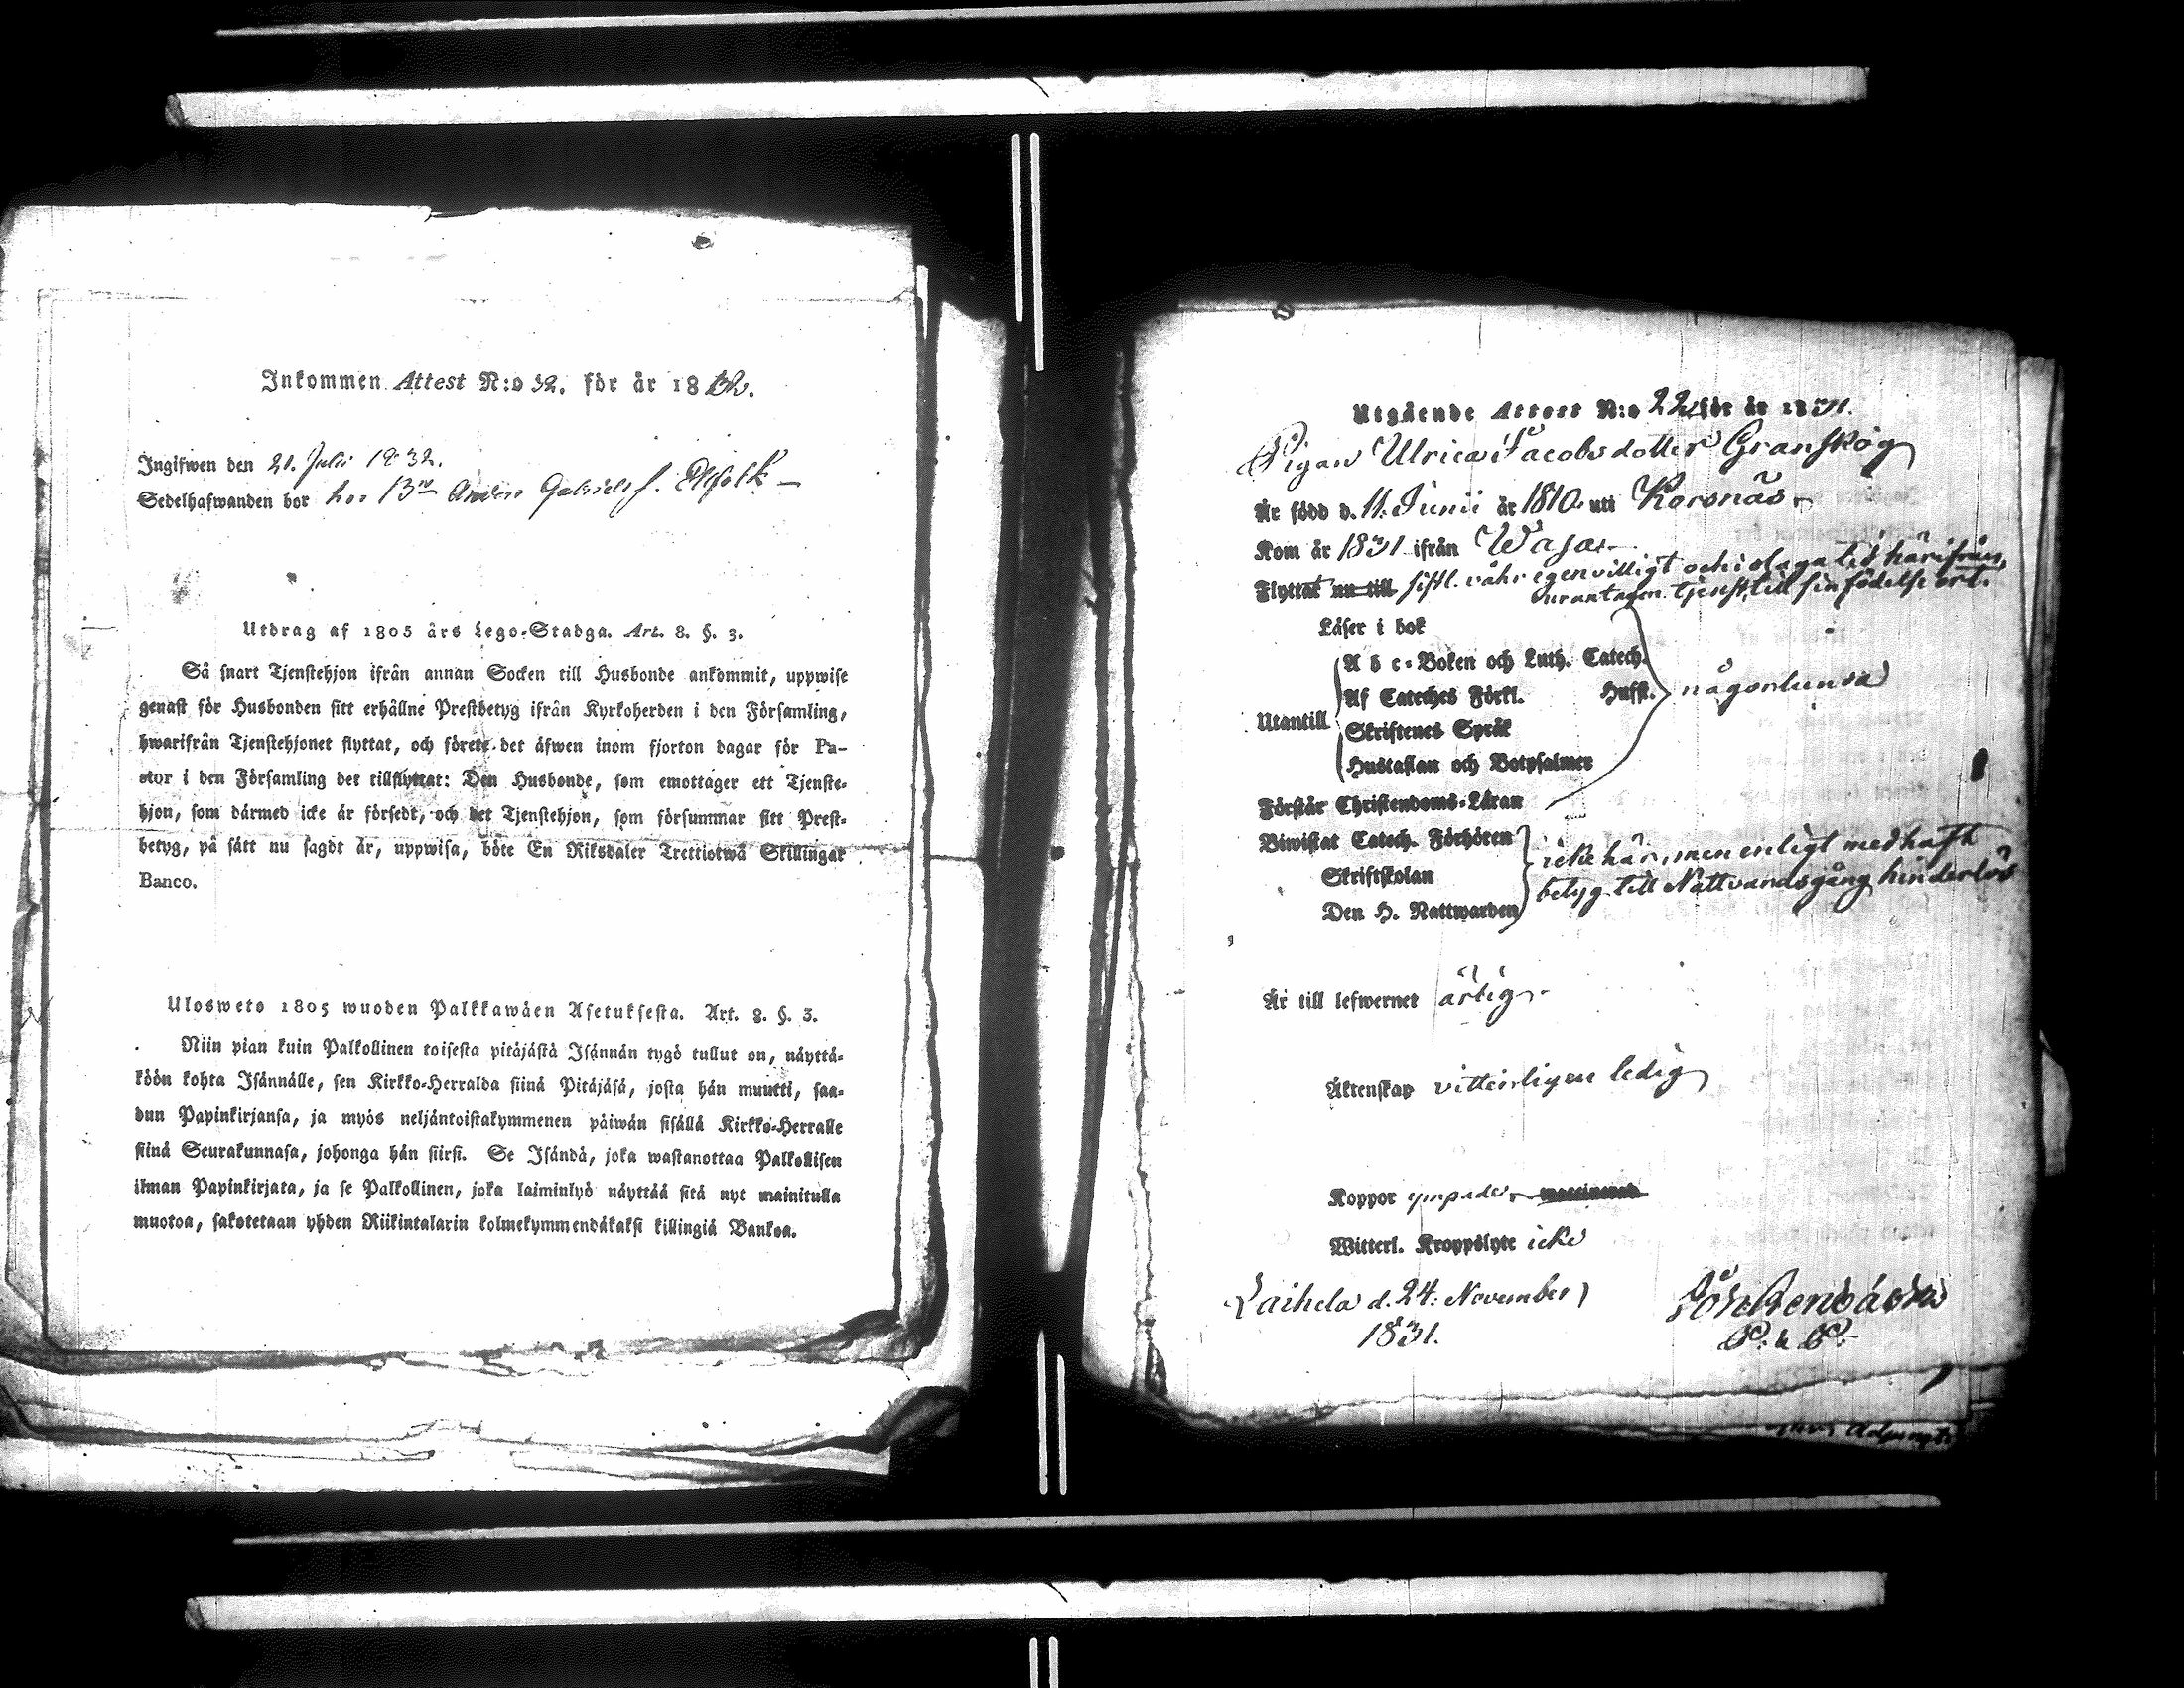 Inkommen Attest N:o 32. för år 1832.
Ingifwen den 21. Julii 1832.
Sedelhafwanden bor hos Bn Anders Gabriels s.
Utdrag af 1805 års Lego-Stadga. Art. 8. §. 3.
Så snart Tjenstehjon ifrån annan Socken till Husbonde ankommit, uppwise
genast för Husbonden sitt erhållne Prestbetyg ifrån Kyrkoherden i den Församling,
hwarifrån Tjenstehjonet flyttat, och förete det äfwen inom fjorton dagar för Pa-
stor i den Församling det tillflyttat: Den Husbonde, som emottager ett Tjenste-
hjon, som därmed icke är försedt, och det Tjenstehjon, som försummar sitt Prest-
betyg, på sätt nu sagdt är, uppwisa, böte En Riksdaler Trettiotwå Skillingar
Banco.
Ulosweto 1805 wuoden Palkkawäen Asetuksesta. Art. 8. §. 3.
Niin pian kuin Palkollinen toisesta pitäjästä Isännän tygö tullut on, näyttä-
köön kohta Isännälle, sen Kirkko-Herralda siinä Pitäjäsä, josta hän muutti, saa-
dun Papinkirjansa, ja myös neljäntoistakymmenen päiwän sisällä Kirkko-Herralle
siinä Seurakunnasa, johonga hän siirsi. Se Isändä, joka wastanottaa Palkollisen
ilman Papinkirjata, ja se Palkollinen, joka laiminlyö näyttää sitä nyt mainitulla
muotoa, sakotetaan yhden Riikintalarin kolmekymmendäkaksi killingiä Bankoa.
Utgående Attest N:o 22 för år 1831.
Pigan Ulrica Jacobsdotter Granskog
Är född d. 11. Junii år 1810 uti Korsnäs
Kom år 1831 ifrån Wasa
Flyttat nu till sistl. våhr egenvilligt och i olaga tid härifrån,
utan tagen tjenst, till sin födelse ort.
Läser i bok
A b c-Boken och Luth. Catech.
Af Cateches Förkl. Hufst. någorlunda
Utantill
Skriftenes Språk
Hustaflan och Botpsalmer
Förstår Christendoms-Läran
Biwistat Catech. Förhören icke här, men enligt medhaft
Skriftskolan betyg till Nattvardsgång hinderlös
Den H. Nattwarden
Är till lefwernet ärlig
Äktenskap vitterligen ledig
Koppor ympade, waccinerad
Witterl. Kroppslyte icke
Laihela d. 24. November
1831.